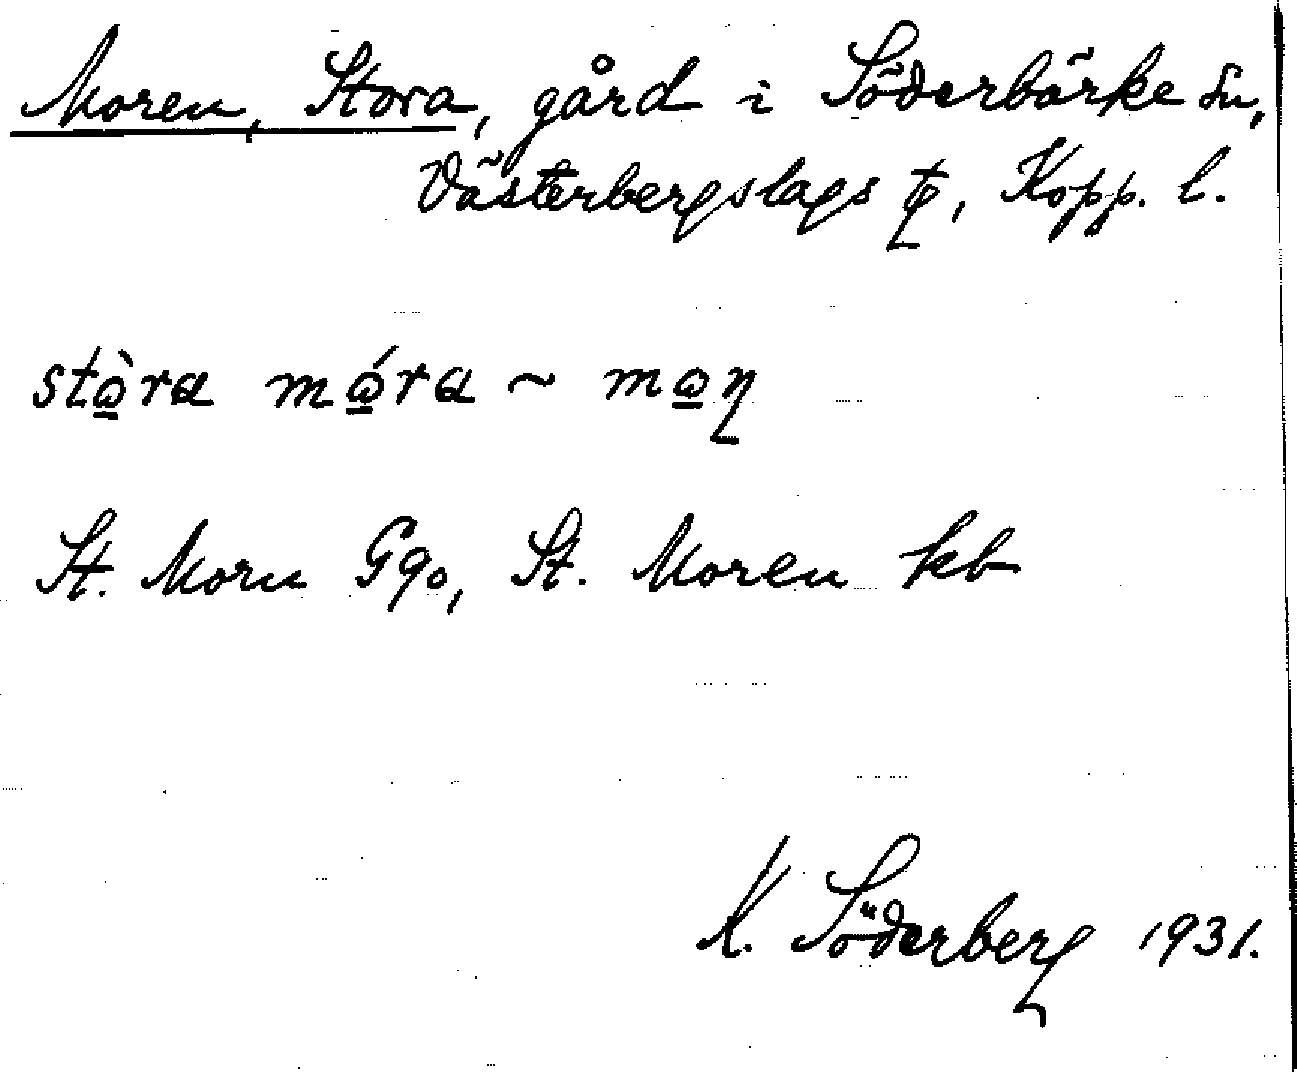 Moren, Stora, gård i Söderbärke sn,
Västerbergslags tg, Kopp. l.
stὼ̲ra mώ̲ra ~ mω̲ɳ
St. Morn Gqo, St. Moren kb
K. Söderberg 1931.